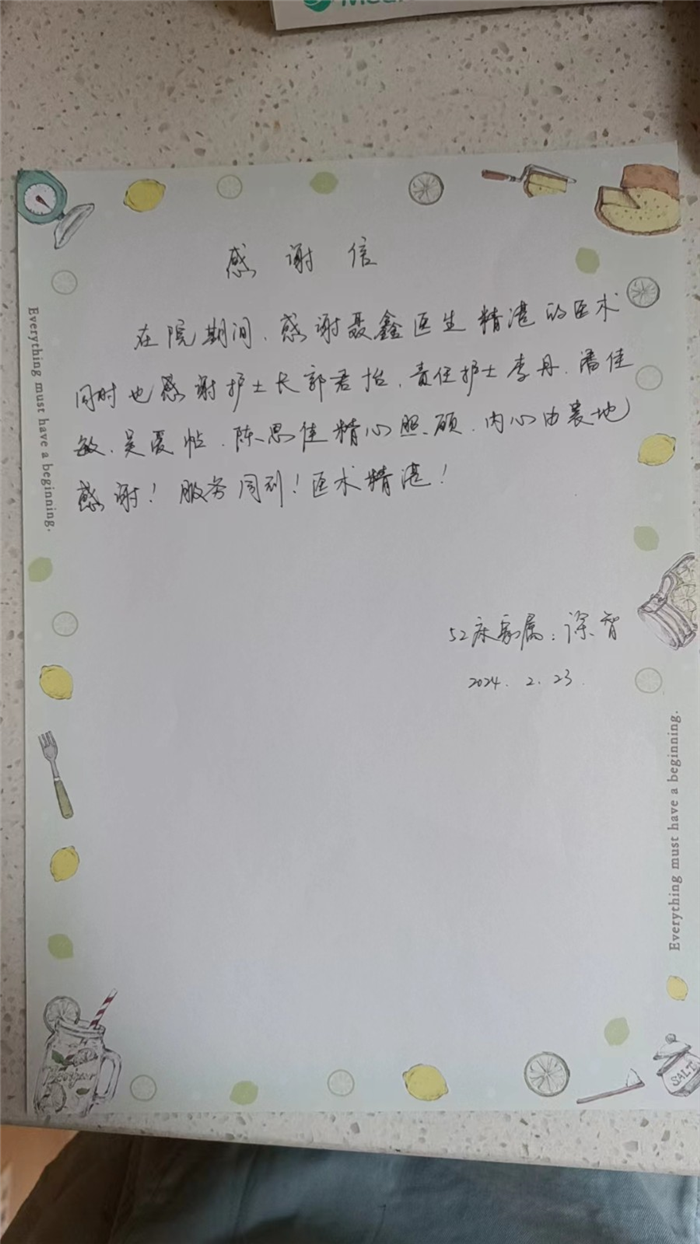 感谢信
在院期间、感谢聂鑫医生精湛的医术
同时也感谢护士长郭君怡、责任护士李丹、潘佳
敏、吴爱帖、陈思佳精心照顾、内心由衷地
感谢！服务周到！医术精湛！
52床家属：徐智
2024.2.23.
Everything must have a beginning.
Everything must have a beginning.
SALT